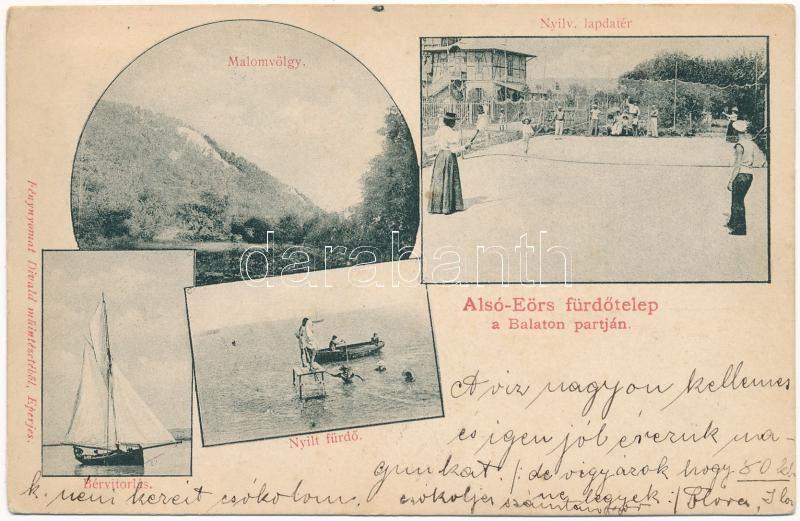 Nyilv. lapdatér
Malomvölgy.
darabanth
Alsó-Eörs fürdőtelep
a Balaton partján.
Fénynyomat Divald műintézetéből, Eperjes.
Nyilt fürdő.
Bérvitorlás.
A viz nagyon kellemes
es igen jól érezzük ma-
gunkat. /: de vigyázok hogy 80 k.
ne legyek :/ Flora,
k. nem kereit csókolom.
csókoljes